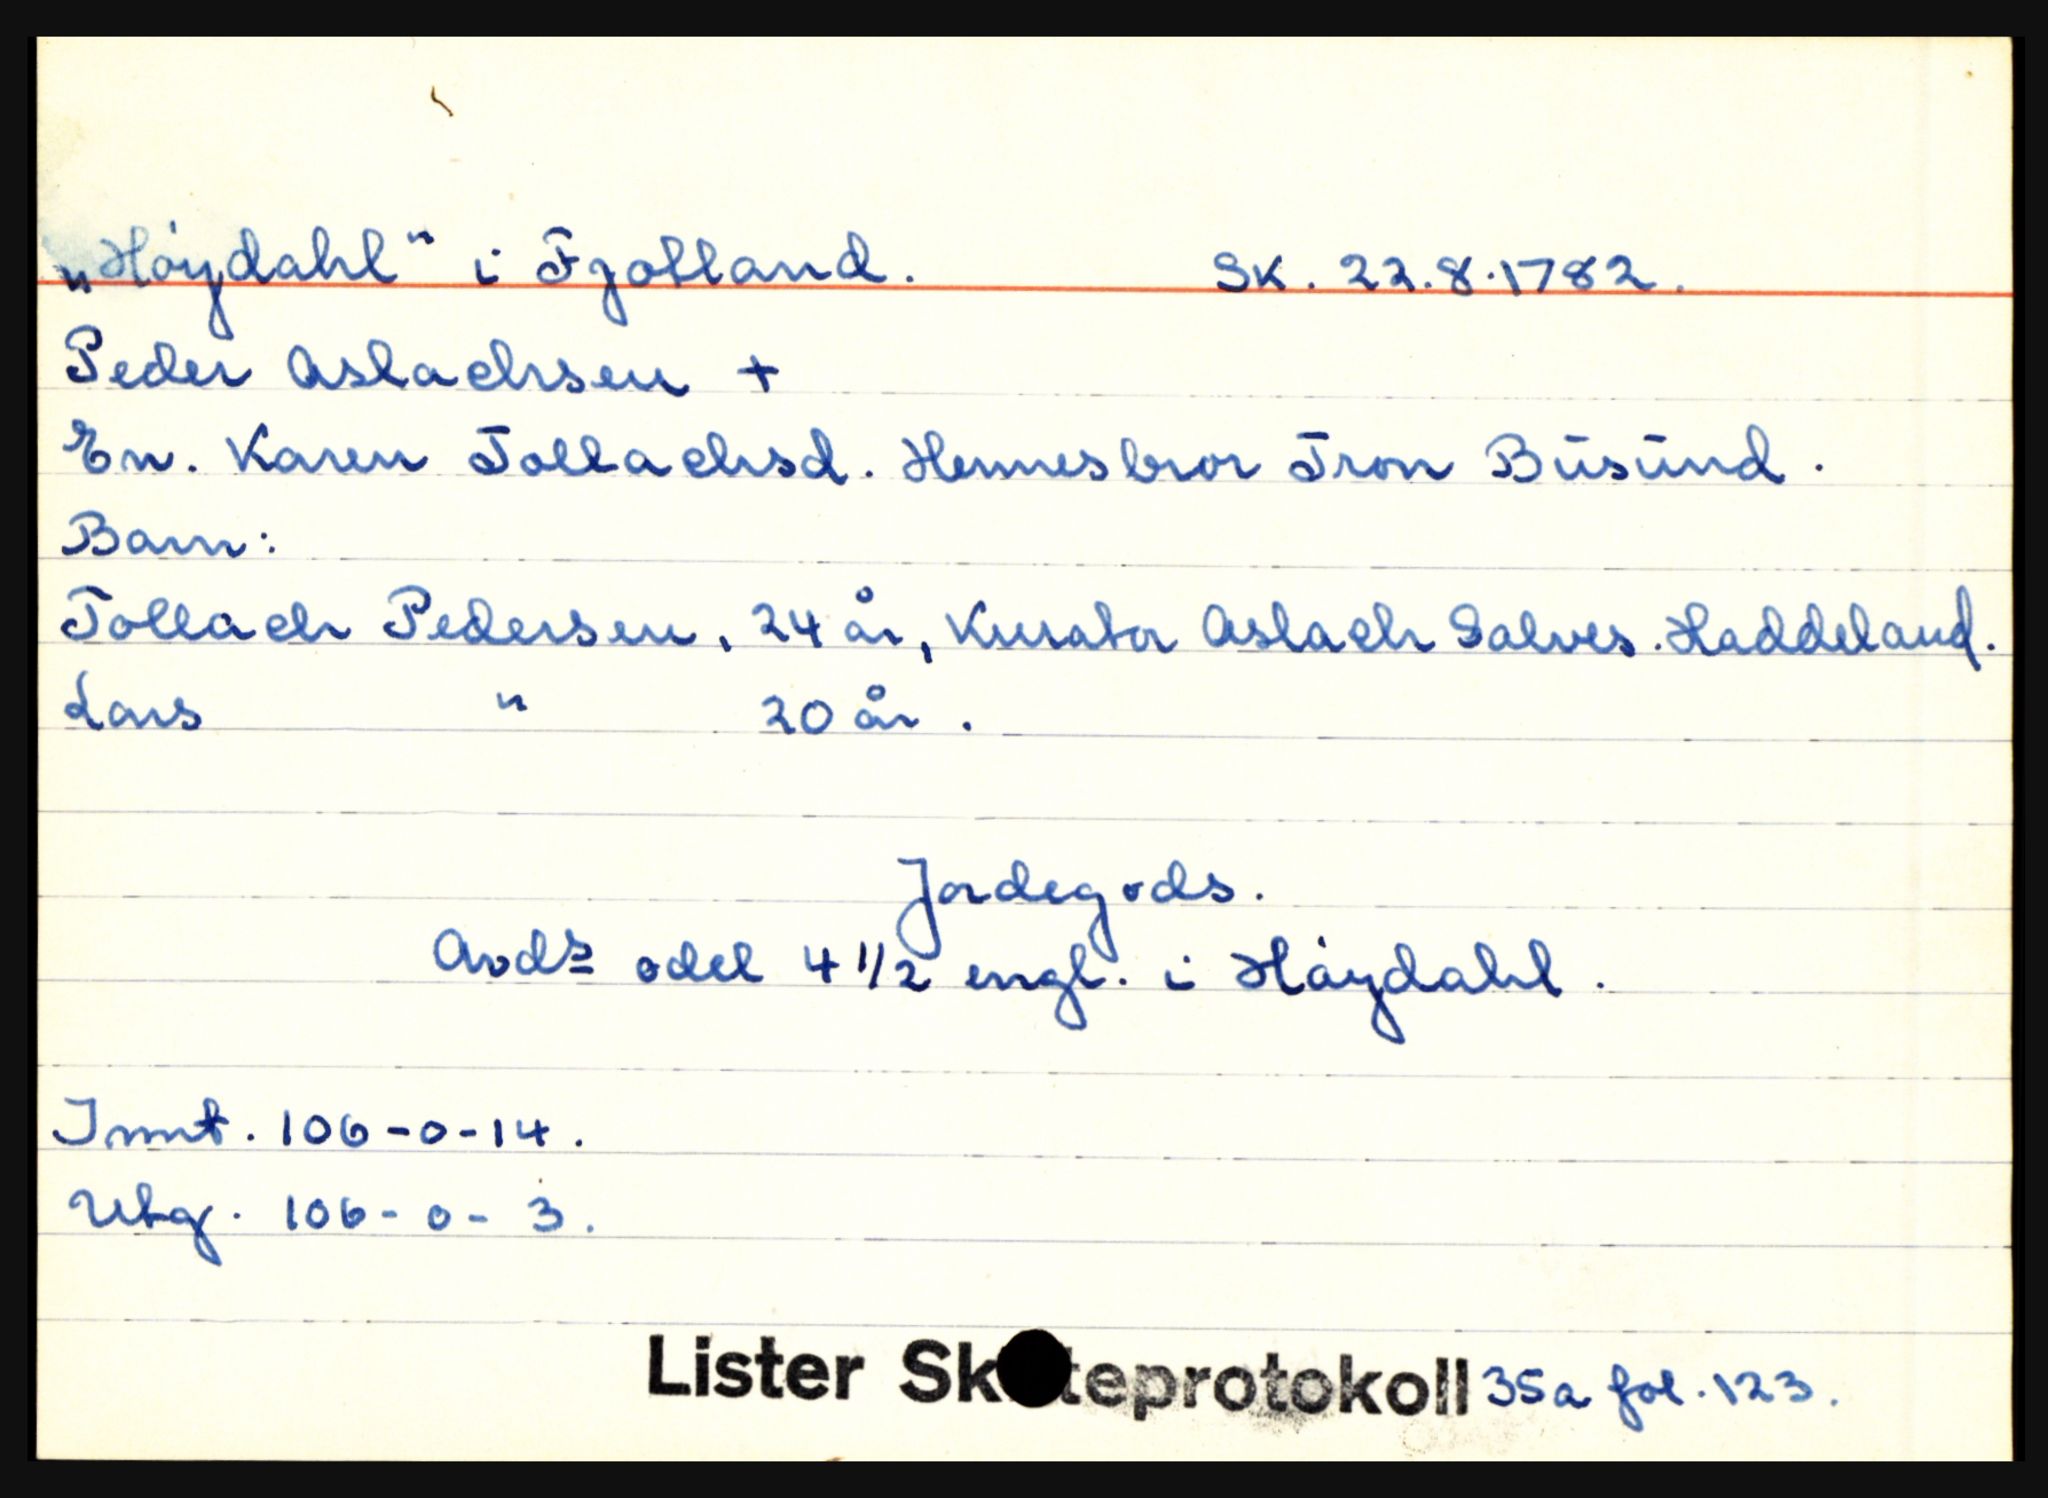 „Höydahl“ i Fjotland. SK. 22.8.1782.
Peder Aslachsen +
En. Karen Tollachsd. Hennes bror Tron Büsünd.
Barn:
Tollach Pedersen, 24 år, Kurator Aslach Salves. Haddeland.
Lars " 20 år.
Jordegods.
Avds odel 4 1/2 engl. i Höydahl.
Innt. 106-0-14.
Utg. 106-0-3.
Lister Skifteprotokoll 35a fol. 123.